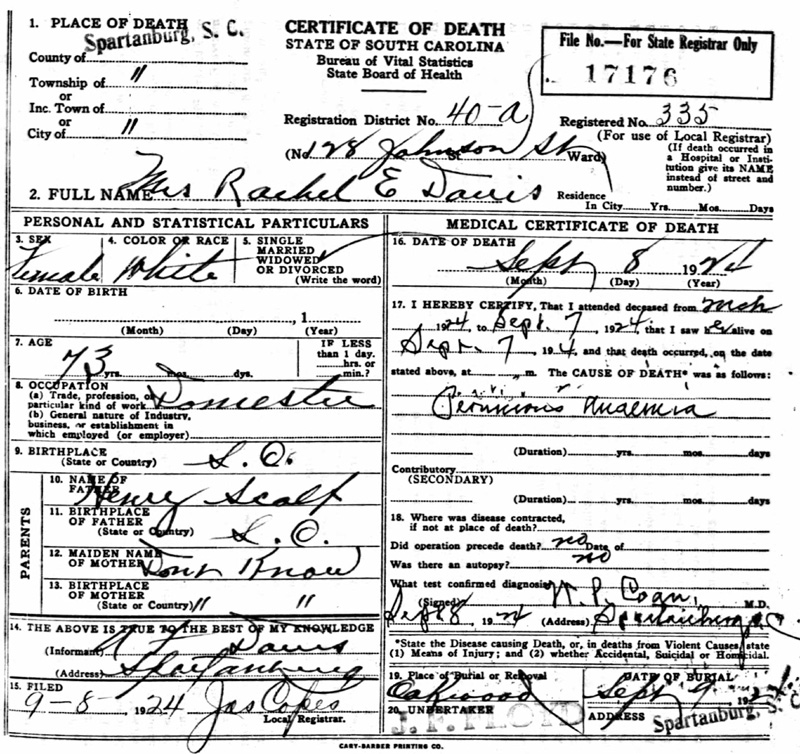 1. PLACE OF DEATH
Spartanburg, S. C.
County of
Township of "
or
Inc. Town of
or
City of "
CERTIFICATE OF DEATH
STATE OF SOUTH CAROLINA
Bureau of Vital Statistics
State Board of Health
File No.—For State Registrar Only
17176
Registration District No. 40-a
Registered No. 335
(For use of Local Registrar)
(No. 128 Johnson St. Ward)
(If death occurred in a Hospital or Institution give its NAME instead of street and number.)
2. FULL NAME Mrs Rachel E Davis
Residence In City Yrs. Mos. Days
PERSONAL AND STATISTICAL PARTICULARS
3. SEX Female
4. COLOR OR RACE White
5. SINGLE MARRIED WIDOWED OR DIVORCED (Write the word)
6. DATE OF BIRTH
, 1
(Month) (Day) (Year)
7. AGE
73 yrs. mos. dys.
IF LESS than 1 day. hrs. or min.?
8. OCCUPATION
(a) Trade, profession, or particular kind of work Domestic
(b) General nature of Industry, business, or establishment in which employed (or employer)
9. BIRTHPLACE
(State or Country) S. C.
PARENTS
10. NAME OF FATHER Henry Scalf
11. BIRTHPLACE OF FATHER
(State or Country) S. C.
12. MAIDEN NAME OF MOTHER Dont Know
13. BIRTHPLACE OF MOTHER
(State or Country) " "
14. THE ABOVE IS TRUE TO THE BEST OF MY KNOWLEDGE
(Informant) Davis
(Address) Spartanburg
15. FILED
9-8-1924 Jas Copes
Local Registrar.
MEDICAL CERTIFICATE OF DEATH
16. DATE OF DEATH
Sept 8 1924
(Month) (Day) (Year)
17. I HEREBY CERTIFY, That I attended deceased from Mch
1924 to Sept. 7, 1924, that I saw her alive on
Sept. 7 1924 and that death occurred, on the date
stated above, at m. The CAUSE OF DEATH* was as follows:
Pernicious Anaemia
(Duration) yrs. mos. days
Contributory
(SECONDARY)
(Duration) yrs. mos. days
18. Where was disease contracted, if not at place of death?
Did operation precede death? no Date of
Was there an autopsy? no
What test confirmed diagnosis
(Signed) W. P. Coan, M.D.
Sept 8 1924 (Address) Spartanburg S C
*State the Disease causing Death, or, in deaths from Violent Causes, state (1) Means of Injury; and (2) whether Accidental, Suicidal or Homicidal.
19. Place of Burial or Removal
Oakwood
DATE OF BURIAL
Sept 9 1924
20. UNDERTAKER
J. F. FLOYD
ADDRESS
Spartanburg, S. C.
CARY-BARBER PRINTING CO.